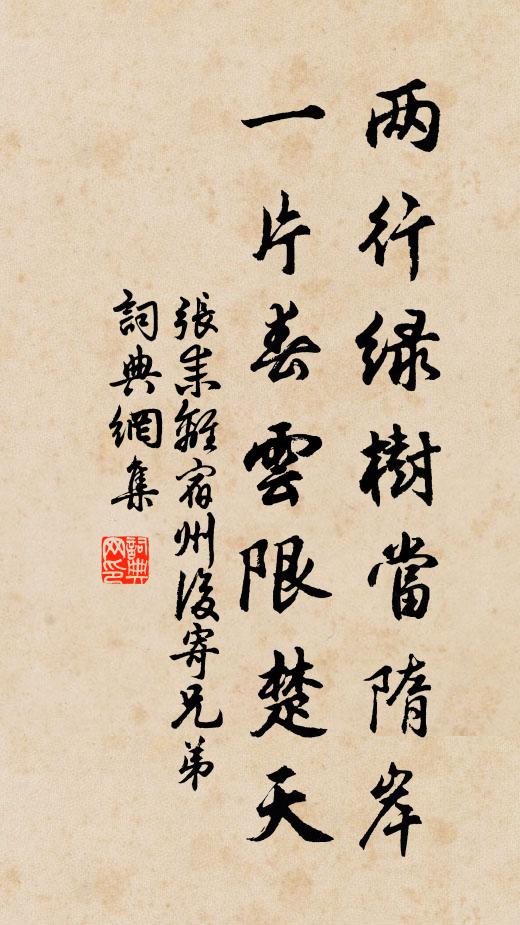 两行绿樹當隋岸
一片春雲限楚天
張耒離宿州後寄兄弟
詞典網集
詞典网印